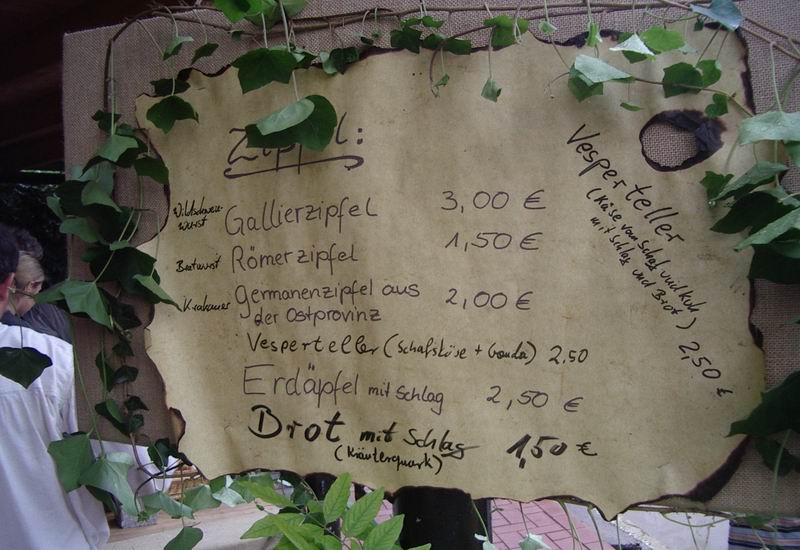 Zipfel:
Wildschwein-
wurst
Gallierzipfel 3,00 €
Bratwurst Römerzipfel 1,50 €
Krakauer Germanenzipfel aus
der Ostprovinz 2,00 €
Vesperteller (Schafskäse + Gouda) 2,50
Erdäpfel mit Schlag 2,50 €
Brot mit Schlag 1,50 €
(Kräuterquark)
Vesperteller
(Käse von Schaf und Kuh
mit Schlag und Brot)
2,50 €